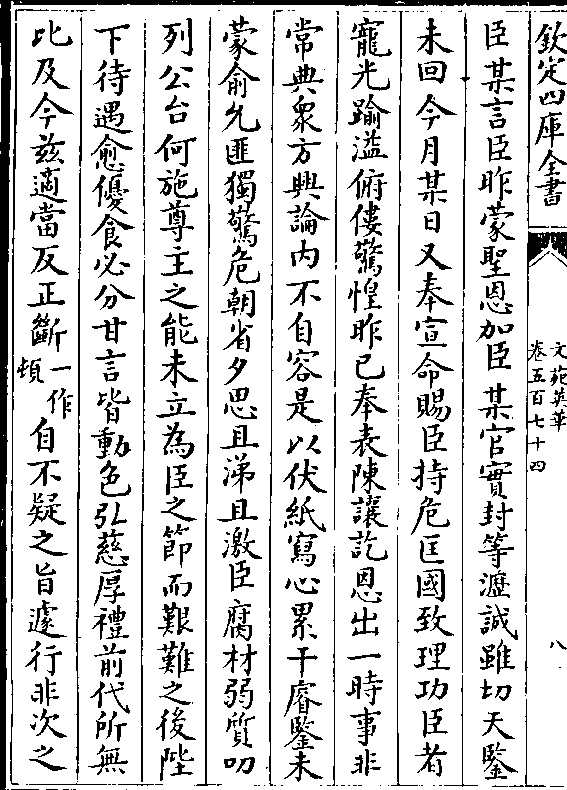 欽定四庫全書
文苑英華
卷五百七十四
八
臣某言臣昨蒙聖恩加臣某官實封等瀝誠雖切天鑒
未回今月某日又奉宣命賜臣持危匡國致理功臣者
寵光踰溢俯僂驚惶昨已奉表陳讓訖恩出一時事非
常典衆方興論内不自容是以伏紙寫心累干睿鑒未
蒙俞允匪獨驚危朝省夕思且涕且激臣腐材弱質叨
列公台何施尊王之能未立為臣之節而艱難之後陛
下待遇愈優食必分甘言皆動色弘慈厚禮前代所無
比及今兹適當反正斷一作頓自不疑之旨遽行非次之